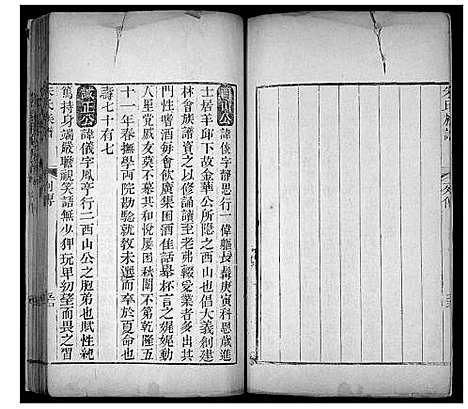 西山公諱俊字靜思行一偉軀長壽庚寅科恩歲進
士居羊邱下故金華公所隱之西山也倡大義創建
林曾族諦資之以修誦讀至老弗輟愛業者多出其
門性嗜酒每會飲廣集困酒佳話舉杯言之娓娓動
人里黨戚友莫不慕其和悅屢困秋闈不第乾隆五
十一年春撫學兩院勘驗就教未選而卒於夏命也
壽七十有七
誠正公諱儀字鳳亭行二西山公之胞弟也賦性純
篤持身端嚴聽視笑語無少狎玩卑幼望而畏之習
朱氏族譜 列傳
朱氏族譜 列傳